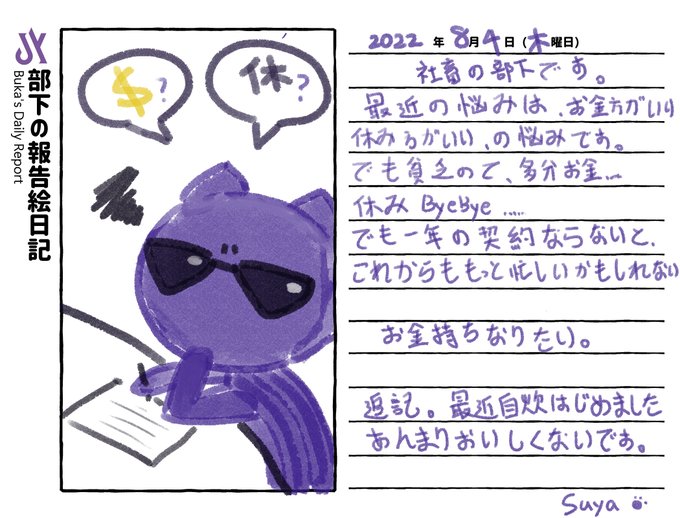 部下の報告絵日記
Buka's Daily Report
$?
休?
2022 年 8月4日(木曜日)
社畜の部下です。
最近の悩みは、お金方がいり
休み方がいい、の悩みです。
でも貧乏ので、多分お金...
休み ByeBye .....
でも一年の契約ならないと、
これからももっと忙しいかもしれない
お金持ちなりたい。
追記。最近自炊はじめました
あんまりおいしくないです。
Suya